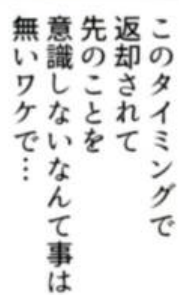 このタイミングで
返却されて
先のことを
意識しないなんて事は
無いワケで…